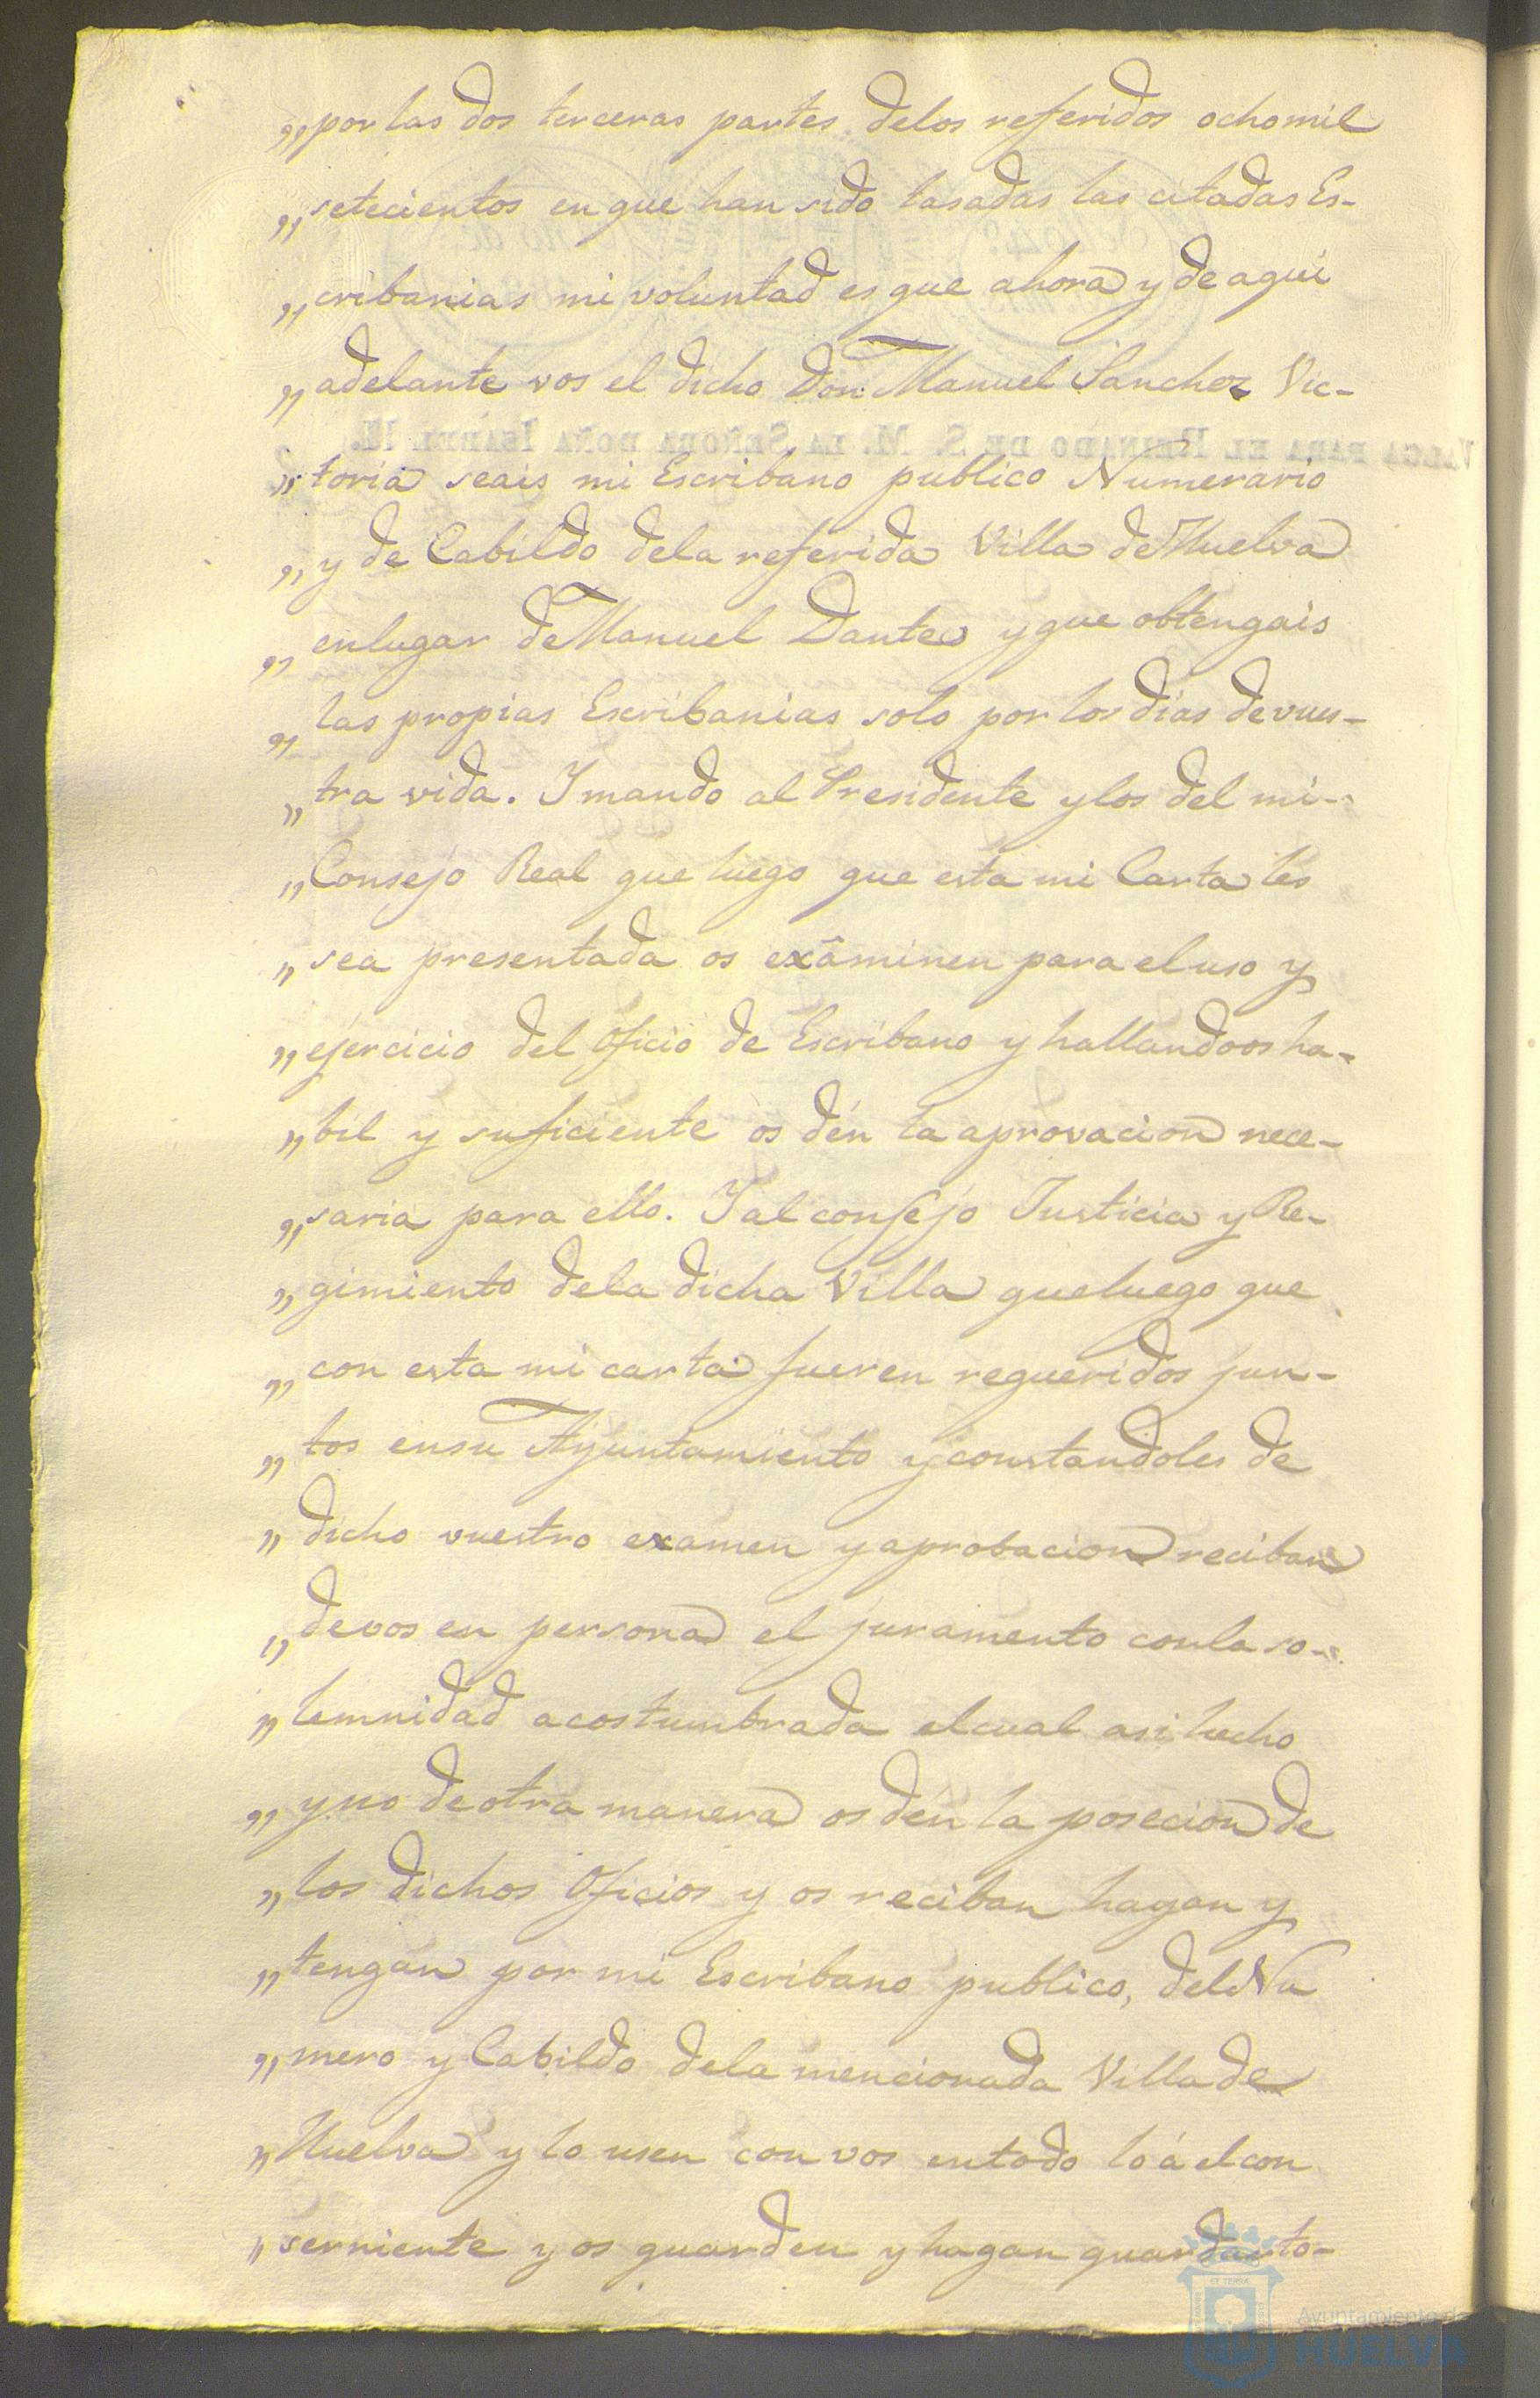 „por las dos terceras partes delos referidos ochomil
„setecientos enque han sido tasadas las citadas Es-
„cribanias mi voluntad es que ahora y de aqui
„adelante vos el dicho Don Manuel Sanchez Vic-
VALGA PARA EL REINADO DE S. M. LA SEÑORA DOÑA ISABEL II.
„toria seais mi Escribano publico Numerario
„y de Cabildo dela referida Villa de Huelva
„enlugar de Manuel Dante y que obtengais
„las propias Escribanias solo por los dias de vues-
„tra vida. Y mando al Presidente y los del mi-
„Consejo Real que luego que esta mi Carta les
„sea presentada os exâminen para el uso y
„ejercicio del Oficio de Escribano y hallandoos ha-
„bil y suficiente os dén la aprovacion nece-
„saria para ello. Y al consejo Justicia y Re-
„gimiento dela dicha Villa queluego que
„con esta mi carta fueren requeridos jun-
„tos ensu Ayuntamiento y constandoles de
„dicho vuestro examen y aprobacion reciban
„devos en persona el juramento conla so-
„lemnidad acostumbrada elcual asi hecho
„y no de otra manera os dén la posecion de
„los dichos Oficios y os reciban hagan y
„tengan por mi Escribano publico, del Nu
„mero y Cabildo dela mencionada Villa de
„Huelva y lo usen con vos entodo lo á el con
„serniente y os guarden y hagan guardar to-
Ayuntamiento de
HUELVA